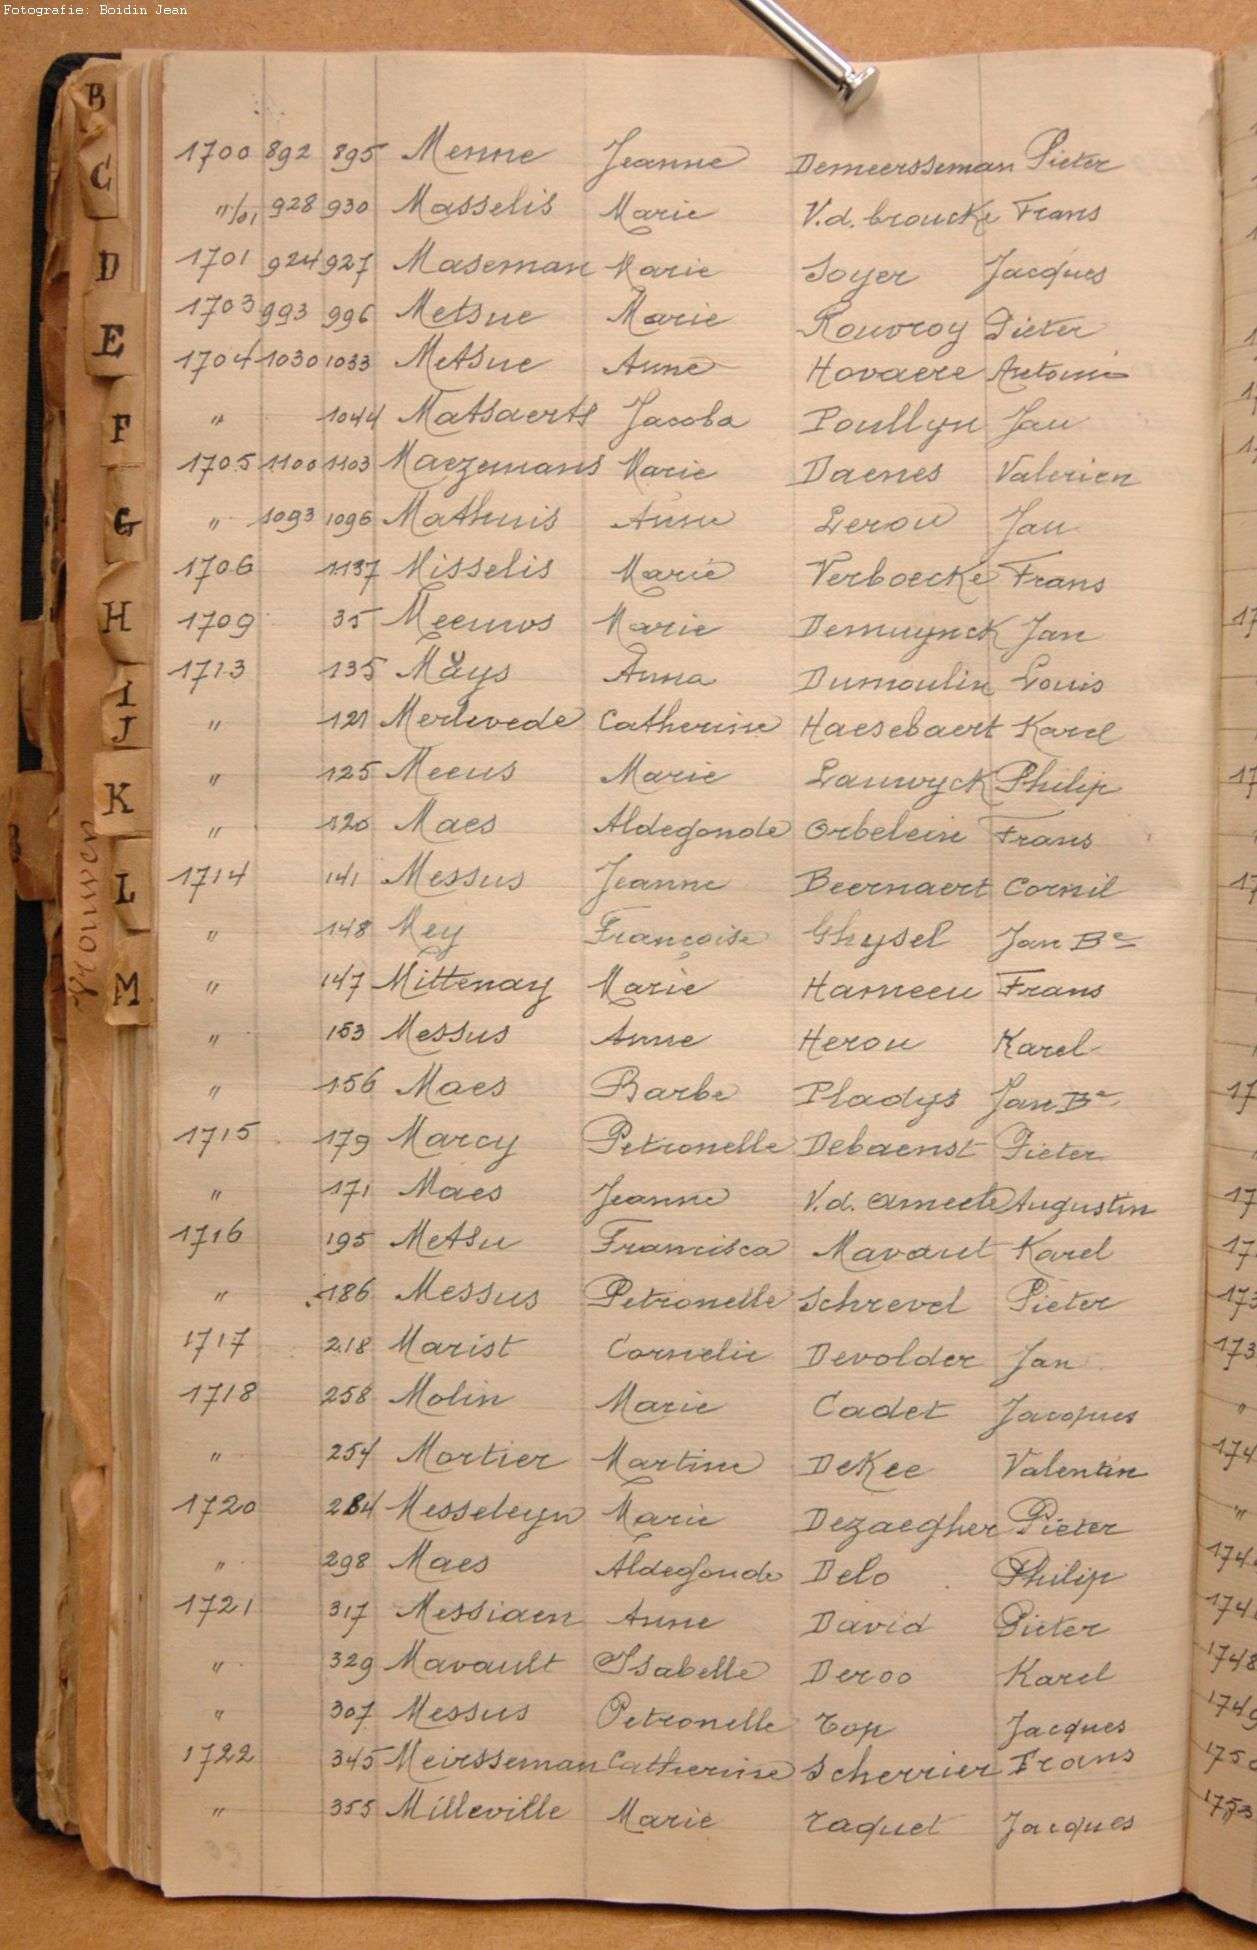 Fotografie: Boidin Jean
B
C
D
E
F
G
H
I
J
K
L
M
Vrouwen
1700 892 895 Menne Jeanne Demeersseman Pieter
"/01 928 930 Masselis Marie V.d. broucke Frans
1701 924 927 Maseman Marie Soyer Jacques
1703 993 996 Metsue Marie Rouvroy Pieter
1704 1030 1033 Metsue Anne Hovaere Antoine
" 1044 Matsaerts Jacoba Poullyn Jan
1705 1100 1103 Maezemans Marie Daenes Valerien
" 1093 1096 Mathuis Anne Lerou Jan
1706 1137 Misselis Marie Verboecke Frans
1709 35 Meeuws Marie Demuynck Jan
1713 135 Mays Anna Dumoulin Louis
" 121 Merlevede Catherine Haesebaert Karel
" 125 Meeus Marie Lauwyck Philip
" 120 Maes Aldegonde Orbelein Frans
1714 141 Messus Jeanne Beernaert Cornil
" 148 Mey Françoise Ghysel Jan Be
" 147 Mittenay Marie Hameeu Frans
" 153 Messus Anne Herou Karel
" 156 Maes Barbe Pladys Jan Be
1715 179 Marcy Petronelle Debaenst Pieter
" 171 Maes Jeanne V.d. Ameele Augustin
1716 195 Metsu Francisca Mavaut Karel
" 186 Messus Petronelle Schrevel Pieter
1717 218 Marist Cornelie Devolder Jan
1718 258 Molin Marie Cadet Jacques
" 254 Mortier Martine DeKee Valentin
1720 284 Messeleyn Marie Dezaegher Pieter
" 298 Maes Aldegonde Delo Philip
1721 317 Messiaen Anne David Pieter
" 329 Mavault Isabelle Deroo Karel
" 307 Messus Petronelle Top Jacques
1722 345 Meirsseman Catherine Scherrier Frans
" 355 Milleville Marie Taquet Jacques